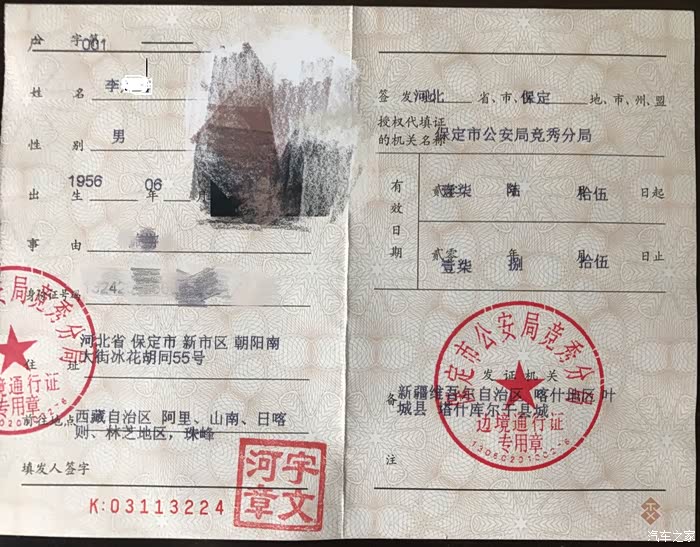 户 字第 001
姓 名 李
性 别 男
出 生 1956 年 06
事 由
身份证号码
住 址 河北省 保定市 新市区 朝阳南
大街冰花胡同55号
前往地点 西藏自治区 阿里、山南、日喀
则、林芝地区，珠峰
填发人签字
K:03113224
河宇章文
安局竞秀分局
边境通行证
专用章
签发 河北 省、市、 保定 地、市、州、盟
授权代填证
的机关名称 保定市公安局竞秀分局
有效日期
贰零壹柒 年 陆 月 拾伍 日起
贰零壹柒 年 捌 月 拾伍 日止
发 证 机 关
备 新疆维吾尔自治区 喀什地区 叶
城县 塔什库尔干县城
注
保定市公安局竞秀分局
边境通行证
专用章
汽车之家